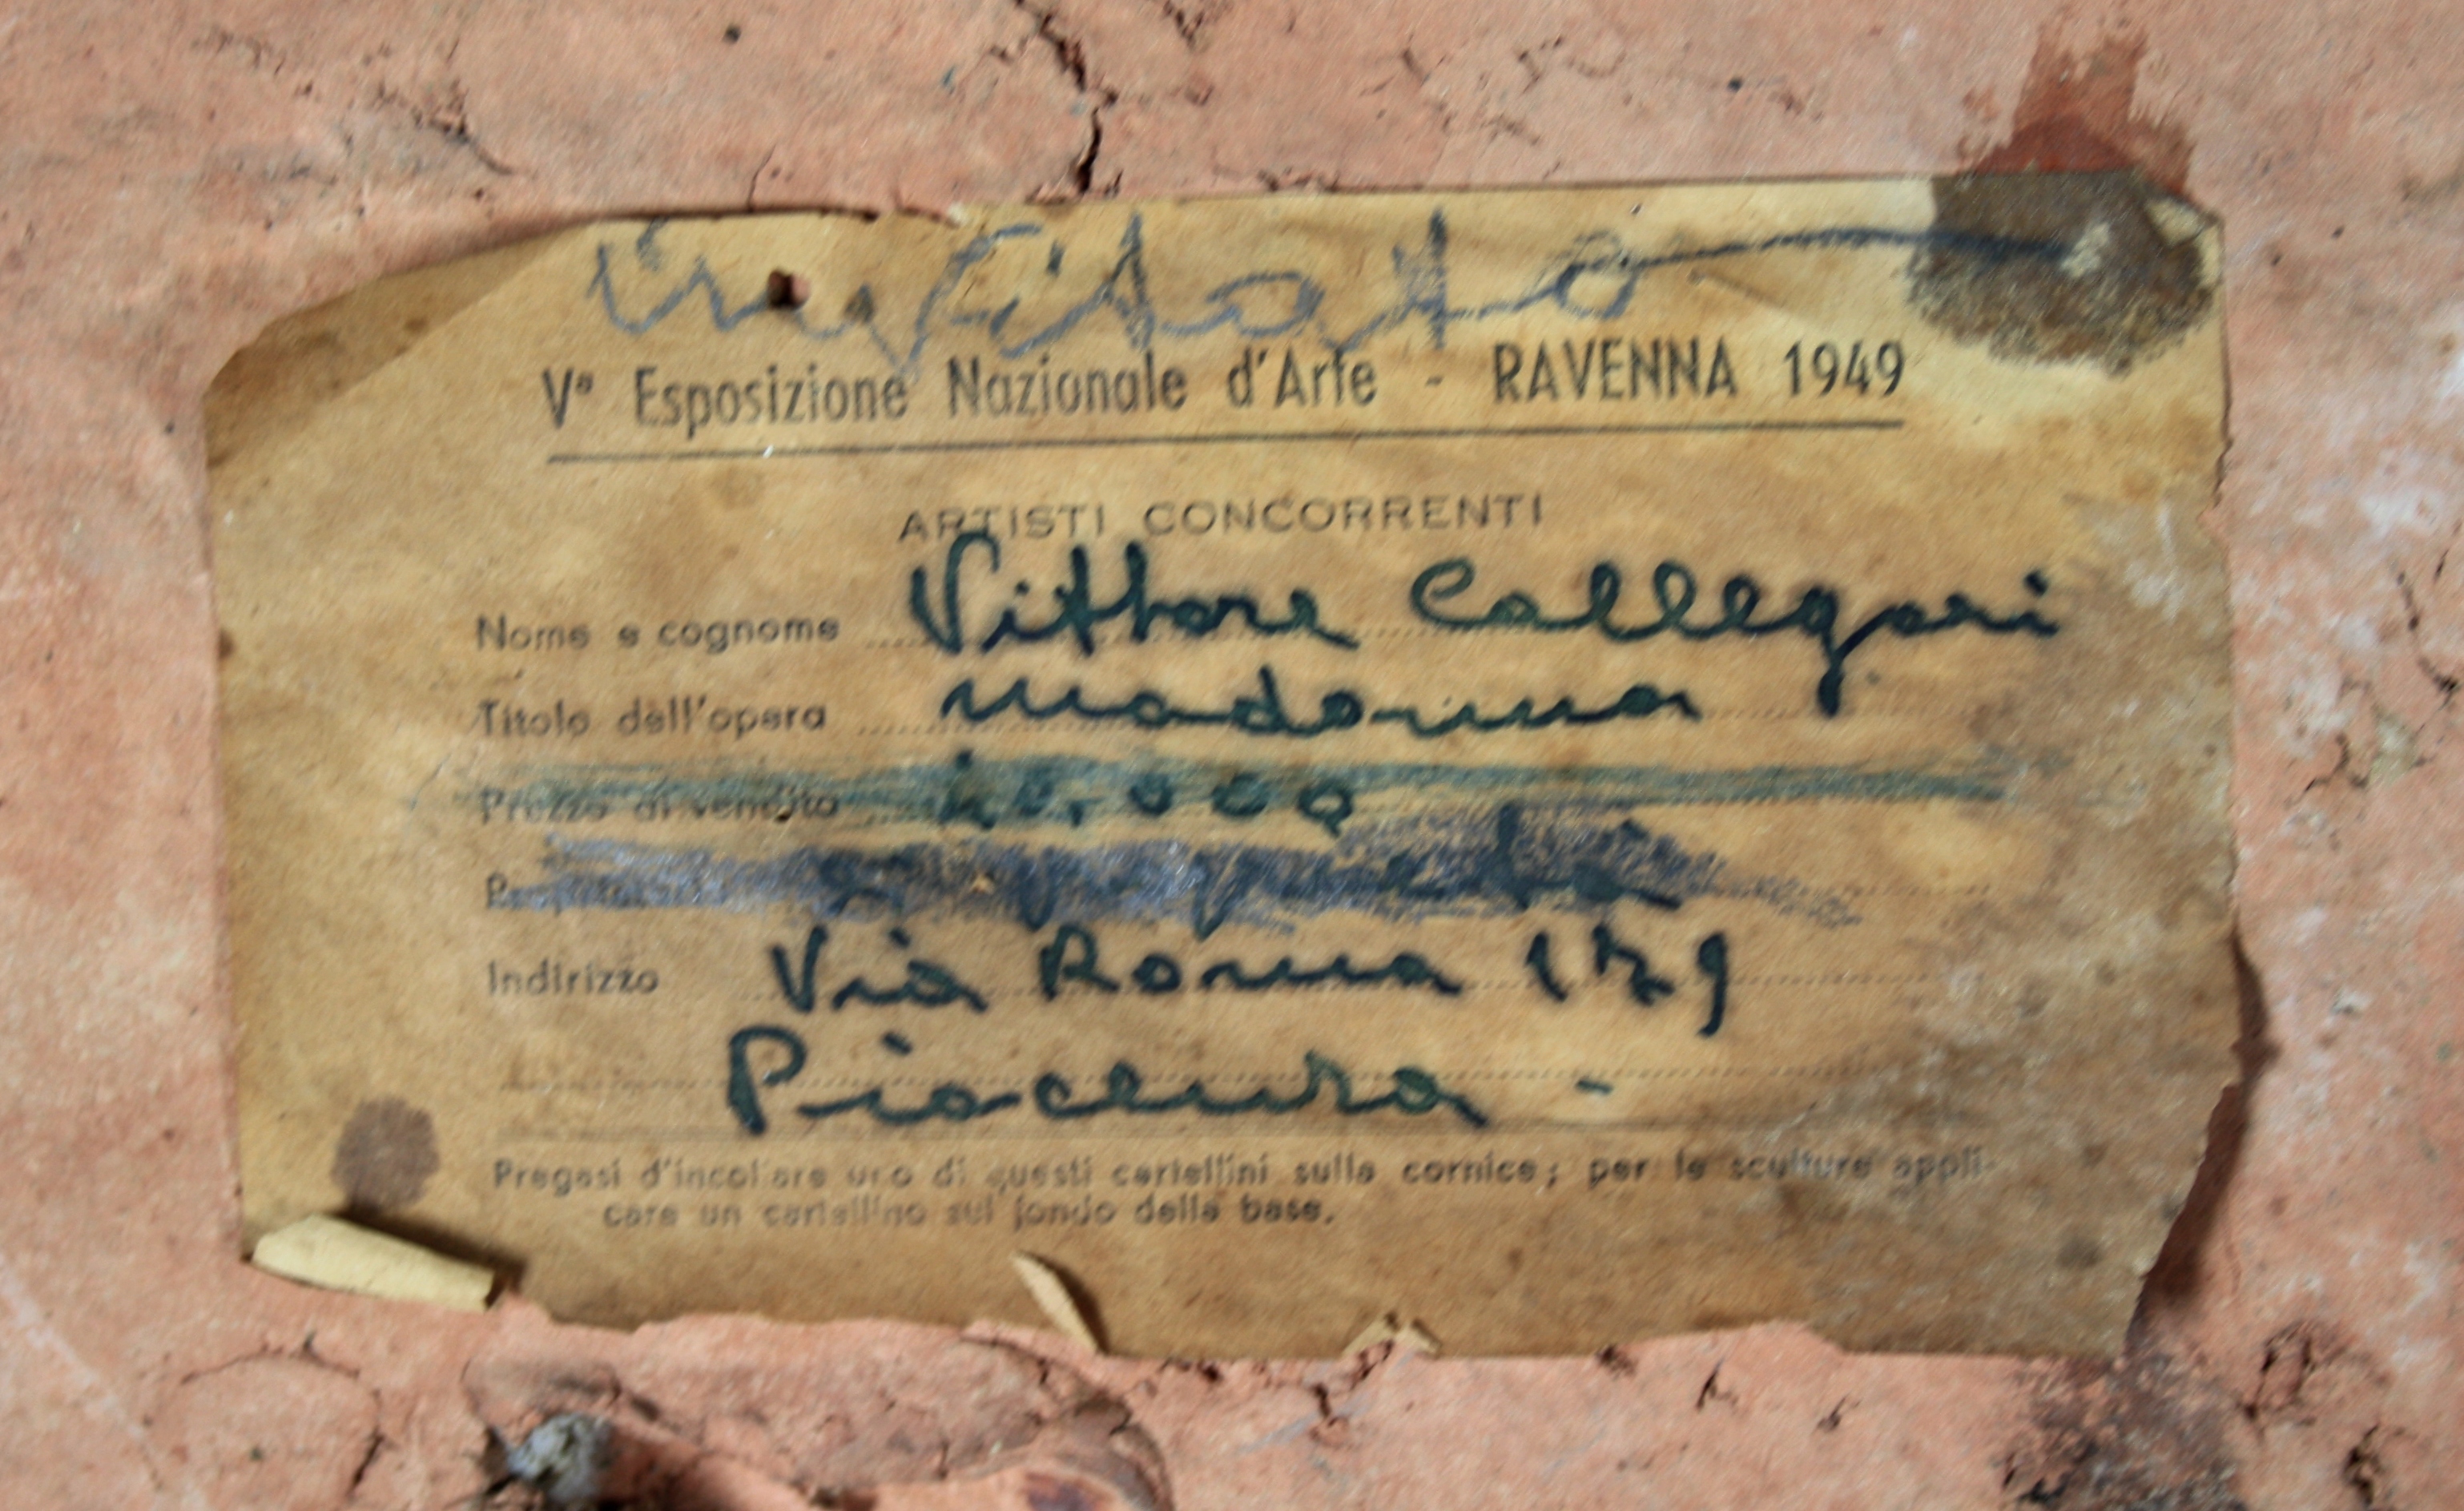 invitato
Vª Esposizione Nazionale d'Arte - RAVENNA 1949
ARTISTI CONCORRENTI
Nome e cognome Vittore Callegari
Titolo dell'opera madonna
Prezzo di vendita
Indirizzo Via Roma 179
Piacenza -
Pregasi d'incollare uno di questi cartellini sulla cornice; per le sculture appli-
care un cartellino sul fondo della base.